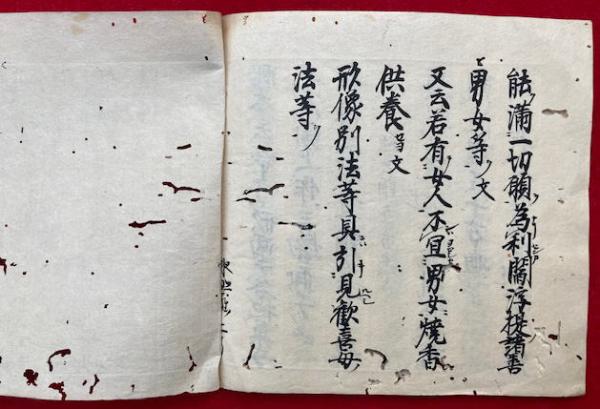 能滿一切願為利閻浮提諸善
男女等文
又云若有女人不宜男女焼香
供養文
形像別法等具引見歓喜母
法等